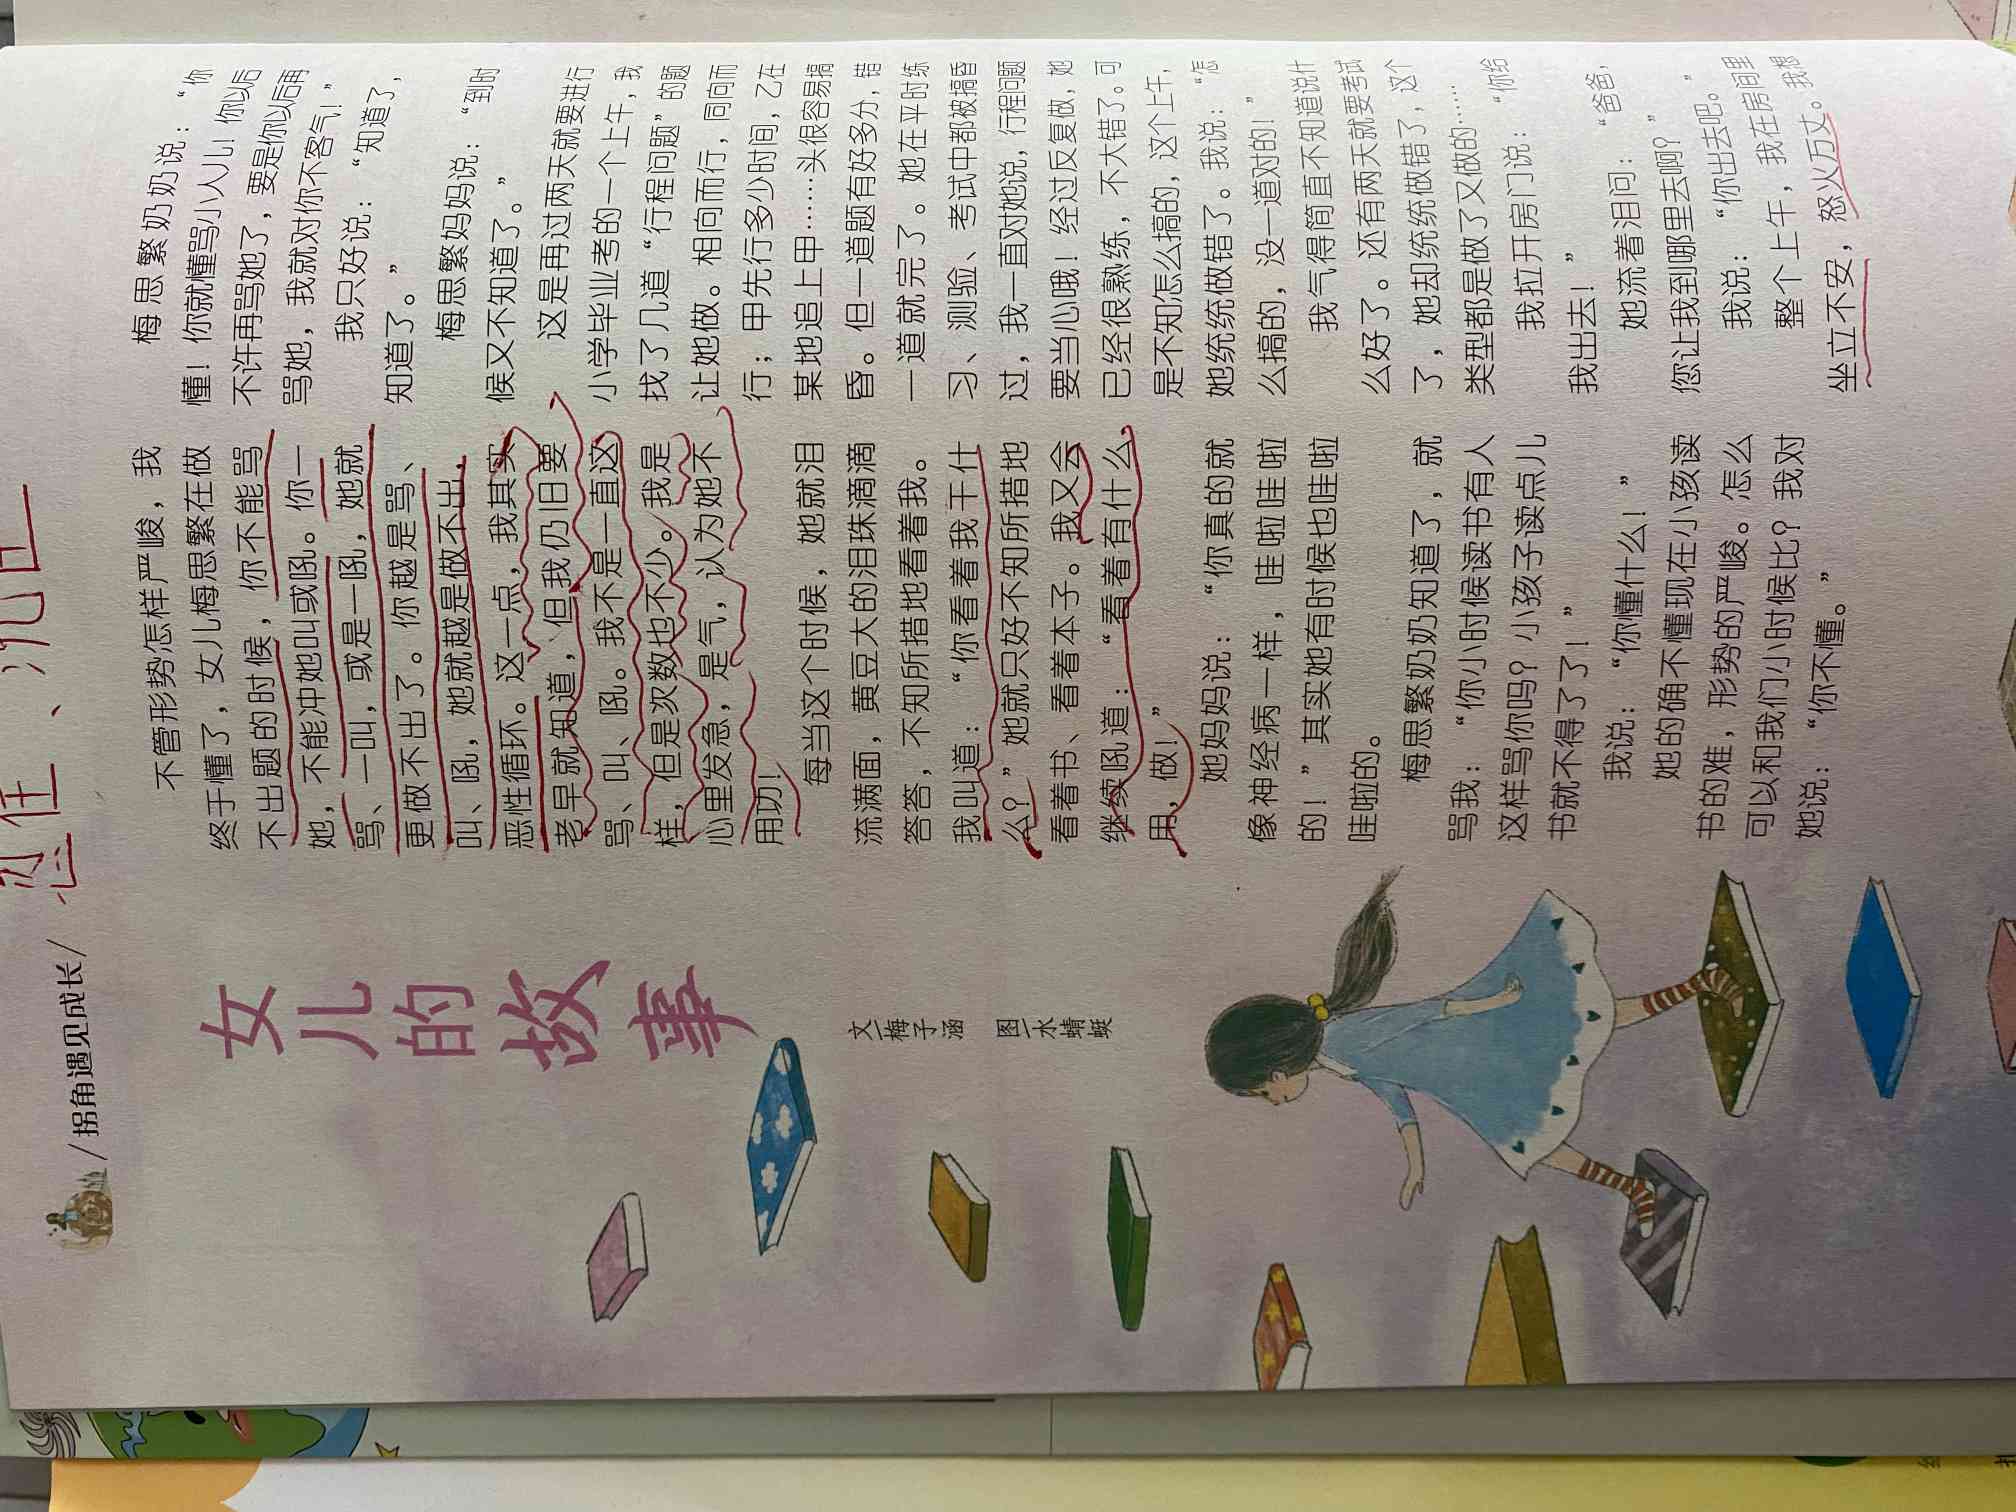 /拐角遇见成长/
女儿的故事
文|梅子涵
图|水蜻蜓
不管形势怎样严峻，我
终于懂了，女儿梅思繁在做
不出题的时候，你不能骂
她，不能冲她叫或吼。你一
骂、一叫，或是一吼，她就
更做不出了。你越是骂、
叫、吼，她就越是做不出，
恶性循环。这一点，我其实
老早就知道，但我仍旧要
骂、叫、吼。我不是一直这
样，但是次数也不少。我是
心里发急，是气，认为她不
用功！
每当这个时候，她就泪
流满面，黄豆大的泪珠滴滴
答答，不知所措地看着我。
我叫道：“你看着我干什
么？”她就只好不知所措地
看着书、看着本子。我又会
继续吼道：“看着有什么
用，做！”
她妈妈说：“你真的就
像神经病一样，哇啦哇啦
的！”其实她有时候也哇啦
哇啦的。
梅思繁奶奶知道了，就
骂我：“你小时候读书有人
这样骂你吗？小孩子读点儿
书就不得了了！”
我说：“你懂什么！”
她的确不懂现在小孩读
书的难，形势的严峻。怎么
可以和我们小时候比？我对
她说：“你不懂。”
梅思繁奶奶说：“你
懂！你就懂骂小人儿！你以后
不许再骂她了，要是你以后再
骂她，我就对你不客气！”
我只好说：“知道了，
知道了。”
梅思繁妈妈说：“到时
候又不知道了。”
这是再过两天就要进行
小学毕业考的一个上午，我
找了几道“行程问题”的题
让她做。相向而行，同向而
行；甲先行多少时间，乙在
某地追上甲……头很容易搞
昏。但一道题有好多分，错
一道就完了。她在平时练
习、测验、考试中都被搞昏
过，我一直对她说，行程问题
要当心哦！经过反复做，她
已经很熟练，不大错了。可
是不知怎么搞的，这个上午，
她统统做错了。我说：“怎
么搞的，没一道对的！”
我气得简直不知道说什
么好了。还有两天就要考试
了，她却统统做错了，这个
类型都是做了又做的……
我拉开房门说：“你给
我出去！”
她流着泪问：“爸爸，
您让我到哪里去啊？”
我说：“你出去吧。”
整个上午，我在房间里
坐立不安，怒火万丈。我想